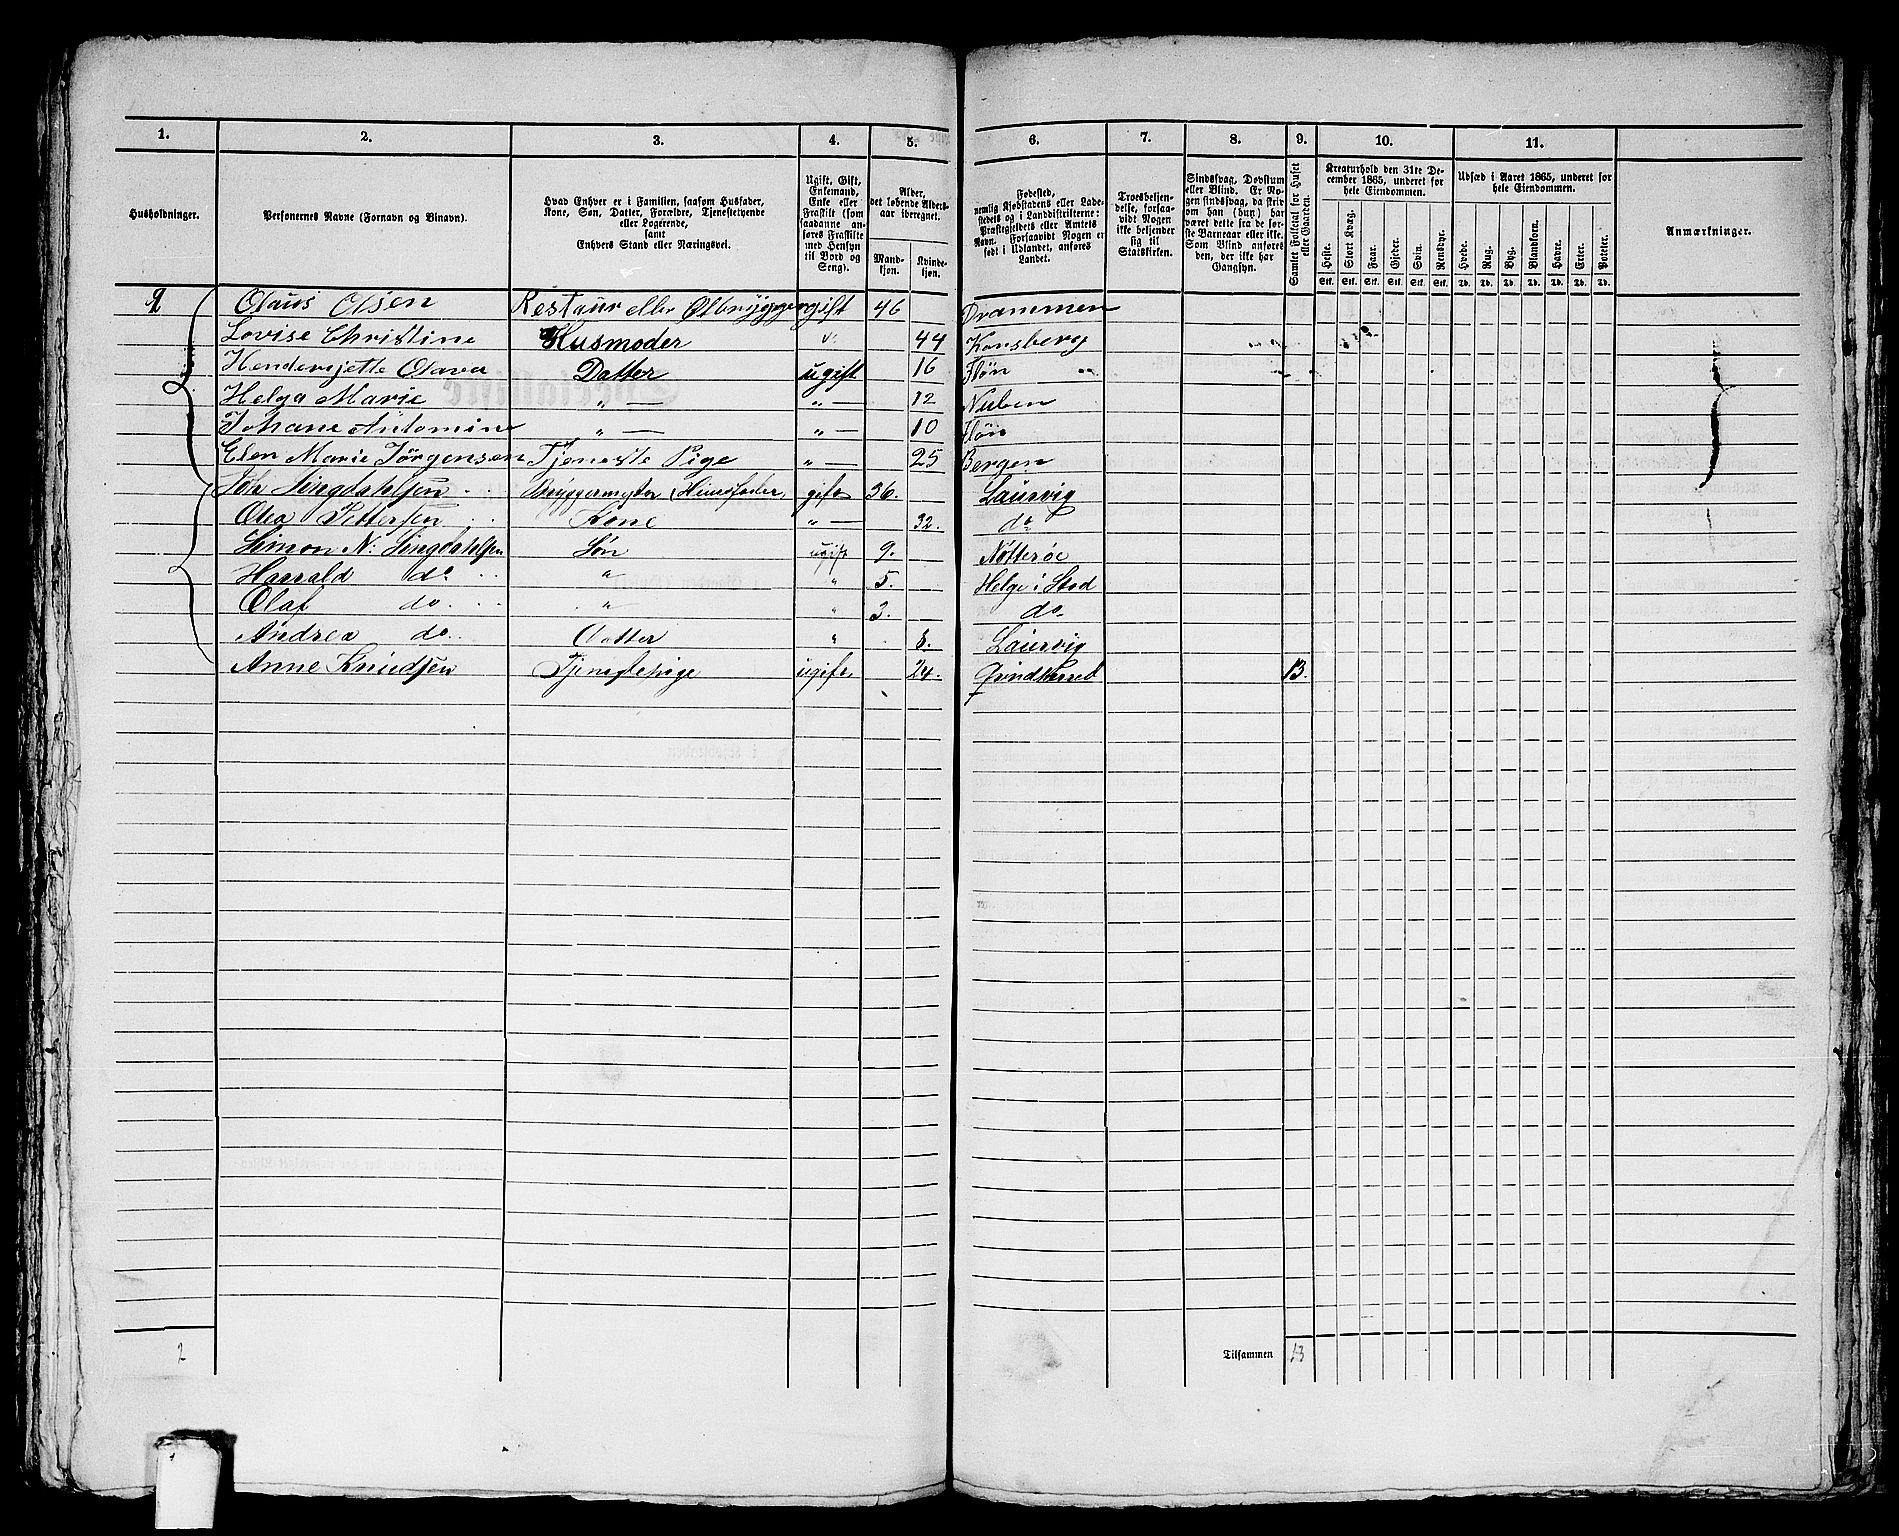 1. 2. 3. 4. 5. 6. 7. 8. 9. 10. 11.
Husholdninger.
Personernes Navne (Fornavn og Binavn).
Hvad Enhver er i Familien, saasom Husfader,
Kone, Søn, Datter, Forældre, Tjenestetyende
eller Logerende,
samt
Enhvers Stand eller Næringsvei.
Ugift, Gift,
Enkemand,
Enke eller
Fraskilt (som
saadanne an-
føres Fraskilte
med Hensyn
til Bord og
Seng).
Alder,
det løbende Alders-
aar iberegnet.
Mand-
kjøn.
Kvinde-
kjøn.
Fødested,
nemlig Kjøbstadens eller Lade-
stedets og i Landdistrikterne:
Præstegjeldets eller Amtets
Navn. Forsaavidt Nogen er
født i Udlandet, anføres
Landet.
Troesbekjen-
delse, forsaa-
vidt Nogen
ikke bekjender
sig til
Statskirken.
Sindssvag, Døvstum
eller Blind. Er No-
gen sindssvag, da skriv
om han (hun) har
været dette fra de før-
ste Barneaar eller ikke.
Som Blind anføres
den, der ikke har
Gangsyn.
Samlet Folketal for Huset
eller Gaarden.
Kreaturhold den 31te De-
cember 1865, underet for
hele Eiendommen.
Heste. Stort Kvæg. Faar. Gjeder. Svin. Rensdyr.
Stk. Stk. Stk. Stk. Stk. Stk.
Udsæd i Aaret 1865, underet for
hele Eiendommen.
Hvede. Rug. Byg. Blandkorn. Havre. Erter. Poteter.
Td. Td. Td. Td. Td. Td. Td.
Anmærkninger.
2 Olaus Olsen Restaur eller Ølbrygger gift 46 Drammen
Lovise Christine Husmoder v: 44 Konsberg
Henderijette Olava Datter ugift 16
Helga Marie " — " — 12
Johane Antomine " — " — 10
Elen Marie Jörgensen Tjeneste Pige " — 25 Bergen
Bryggermester (Huusfader) gift 36. Laurvig
Olea Pettersen Kone " — 32. do
Simon N: Søn ugift 9. Nøtterøe
Harrald do " " 5. Helge i Stod
Olaf do. " " 3. do.
Andrea do. Datter " 8. Laurvig
Anne Knudsen Tjenestepige ugift 24. 13.
2
Tilsammen 13